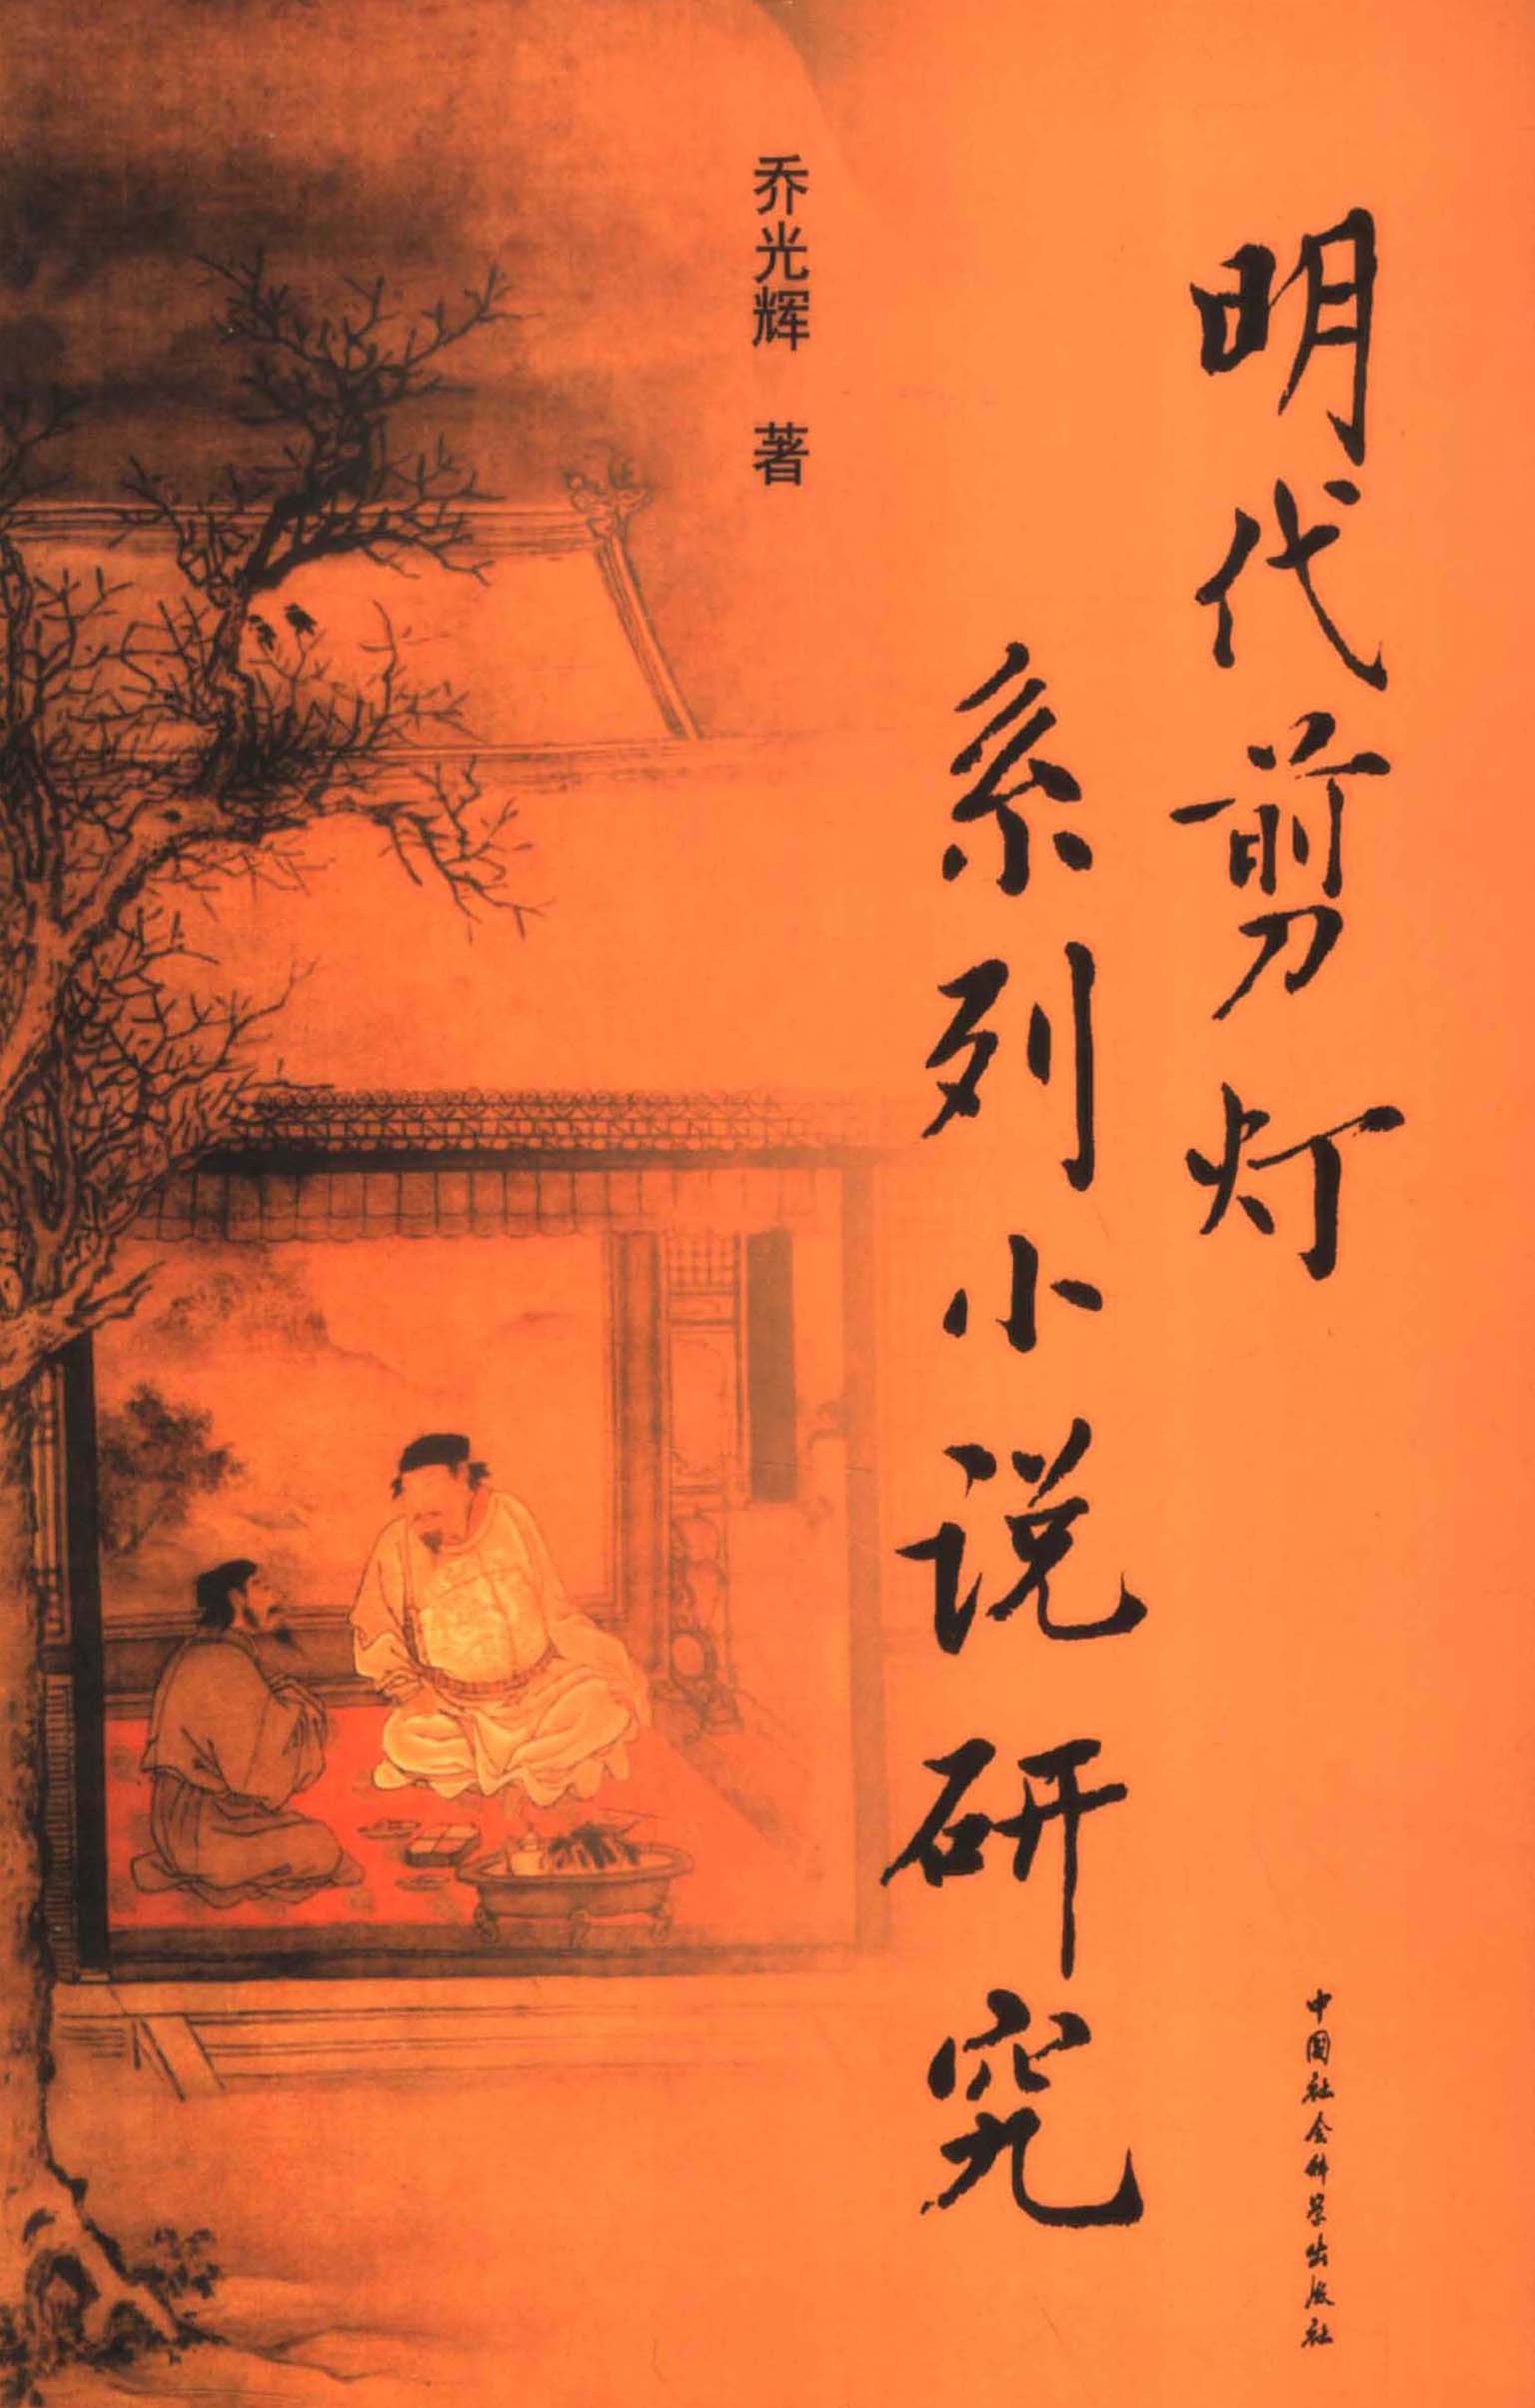 明代剪灯
系列小说研究
乔光辉 著
中国社会科学出版社